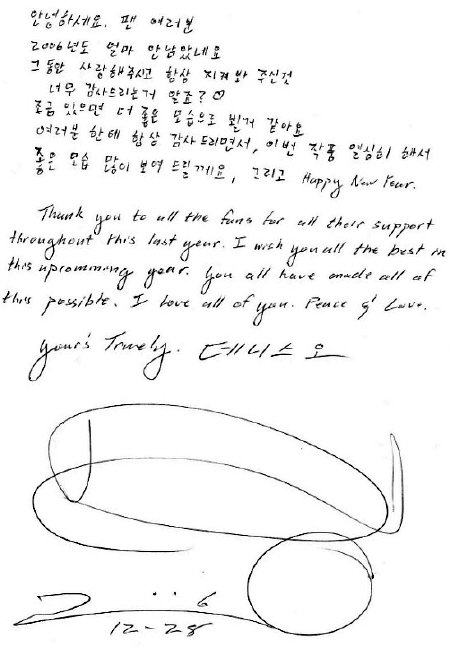 안녕하세요. 팬 여러분
2006년도 얼마 안남았네요
그동안 사랑해주시고 항상 지켜봐 주신것
너무 감사드리는거 알죠?♡
조금 있으면 더 좋은 모습으로 뵐거 같아요
여러분 한테 항상 감사드리면서, 이번 작품 열심히 해서
좋은 모습 많이 보여 드릴께요, 그리고 Happy New Year.
Thank you to all the fans for all their support
throughout this last year. I wish you all the best in
this upromming year. You all have made all of
this possible. I love all of you. Peace & Love.
Your's Truely. 데니스 오
12-28